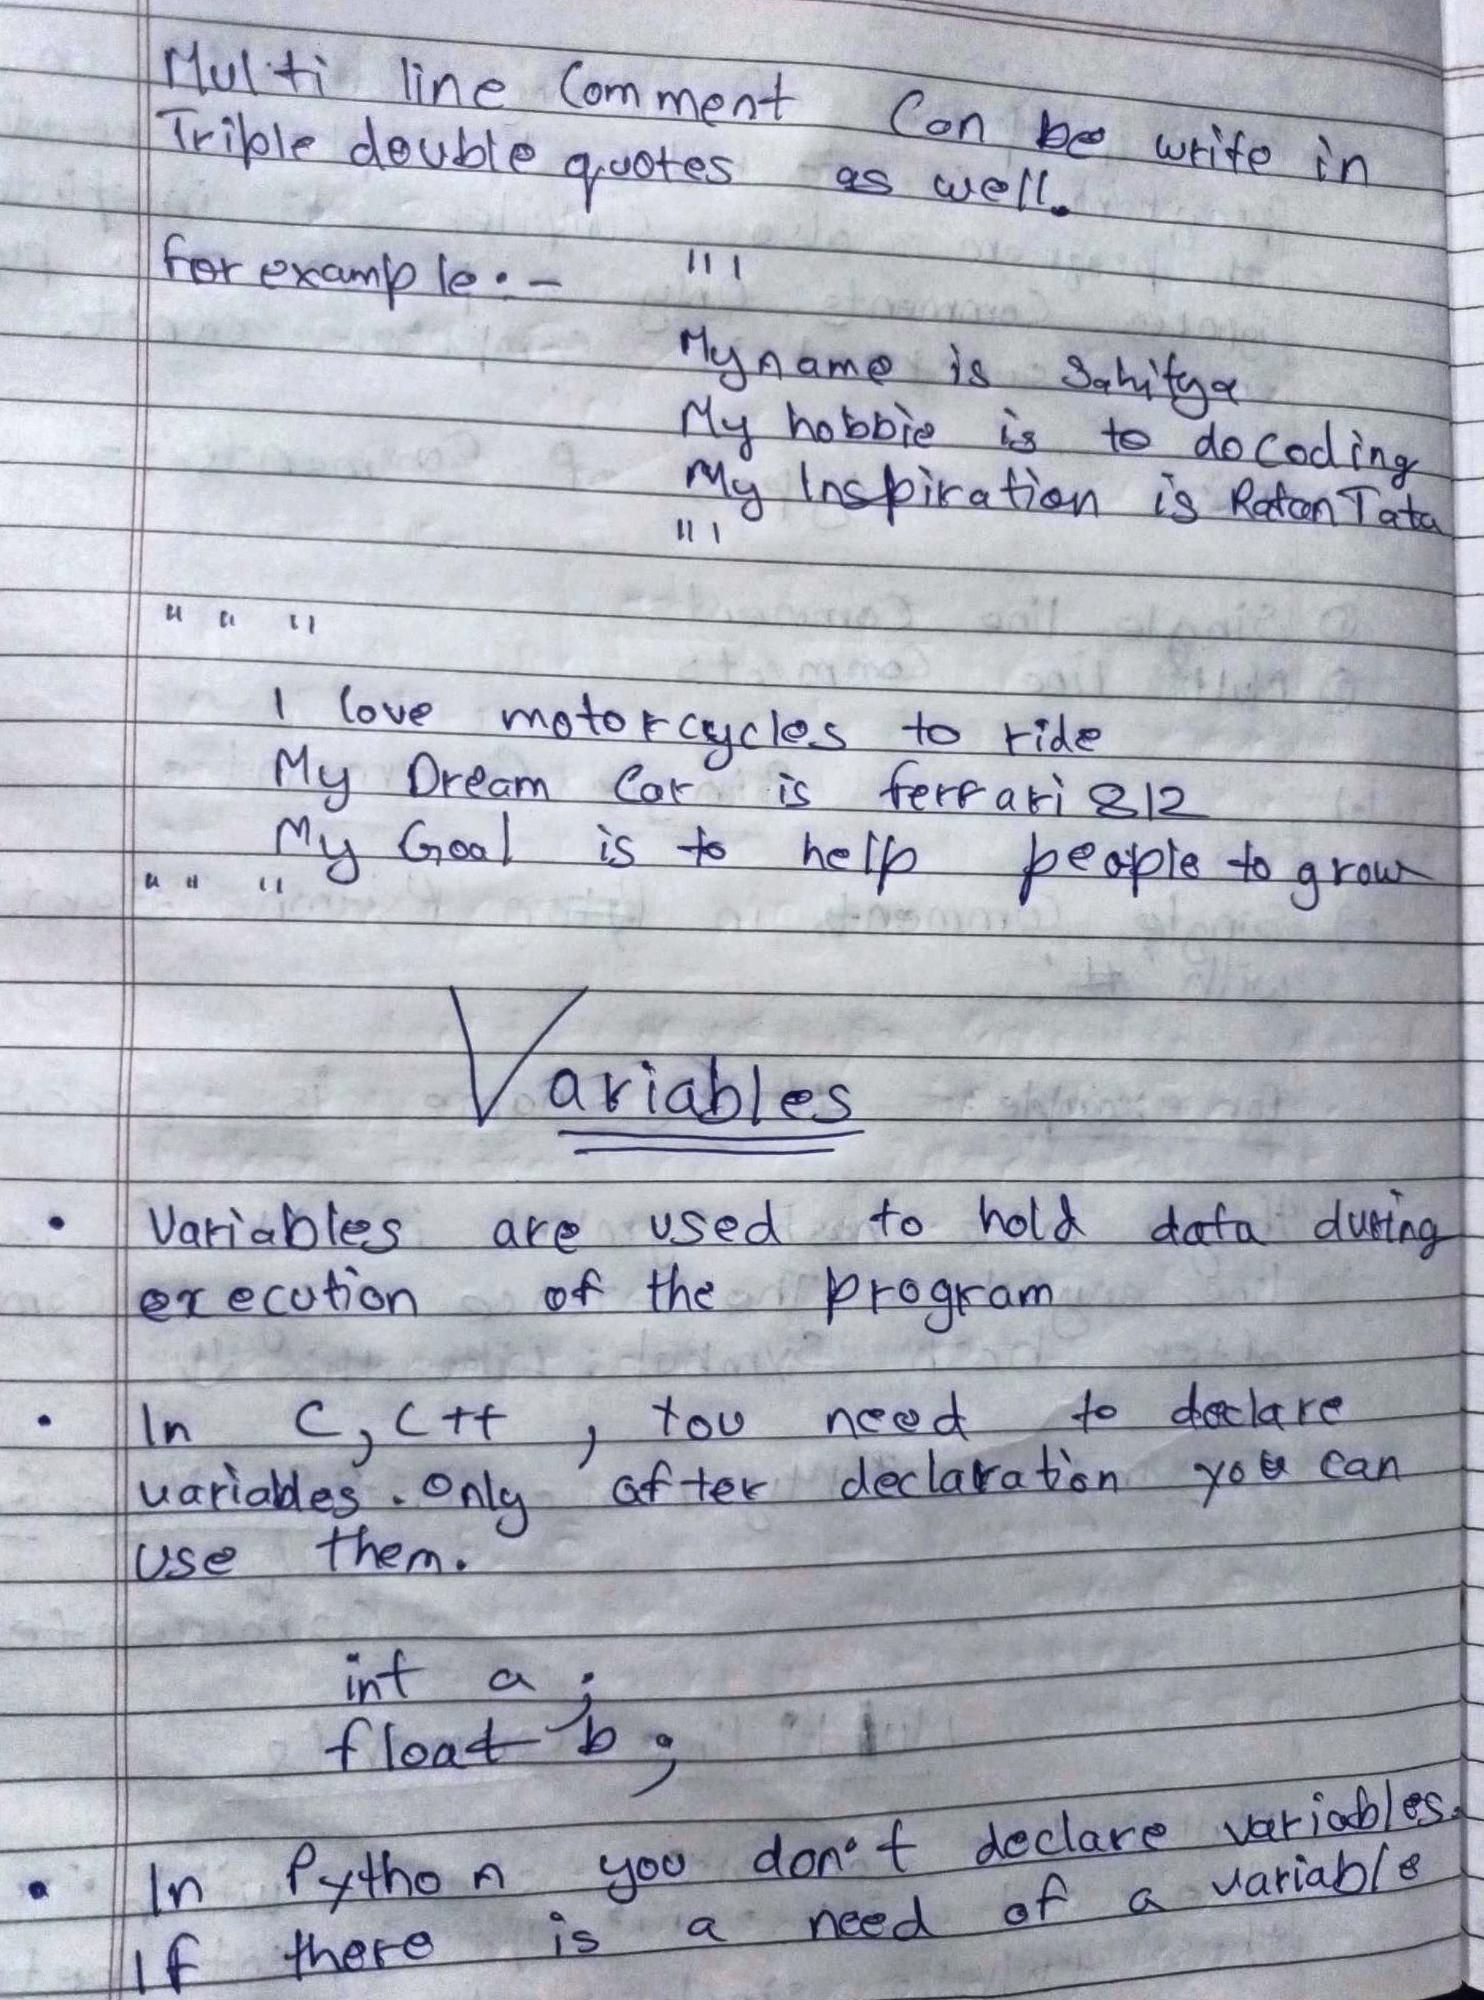 Multi line Comment Can be write in
Trible double quotes as well.
for example:-
'''
My name is Sahitya
My hobbie is to do Coding
My Inspiration is Ratan Tata
'''
" " "
I love motorcycles to ride
My Dream Car is ferrari 812
My Goal is to help people to grow
" " "
Variables
• Variables are used to hold data during
execution of the program
• In C, C++, You need to declare
variables. Only after declaration you can
use them.
int a;
float b;
• In Python you don't declare variables.
If there is a need of a variable